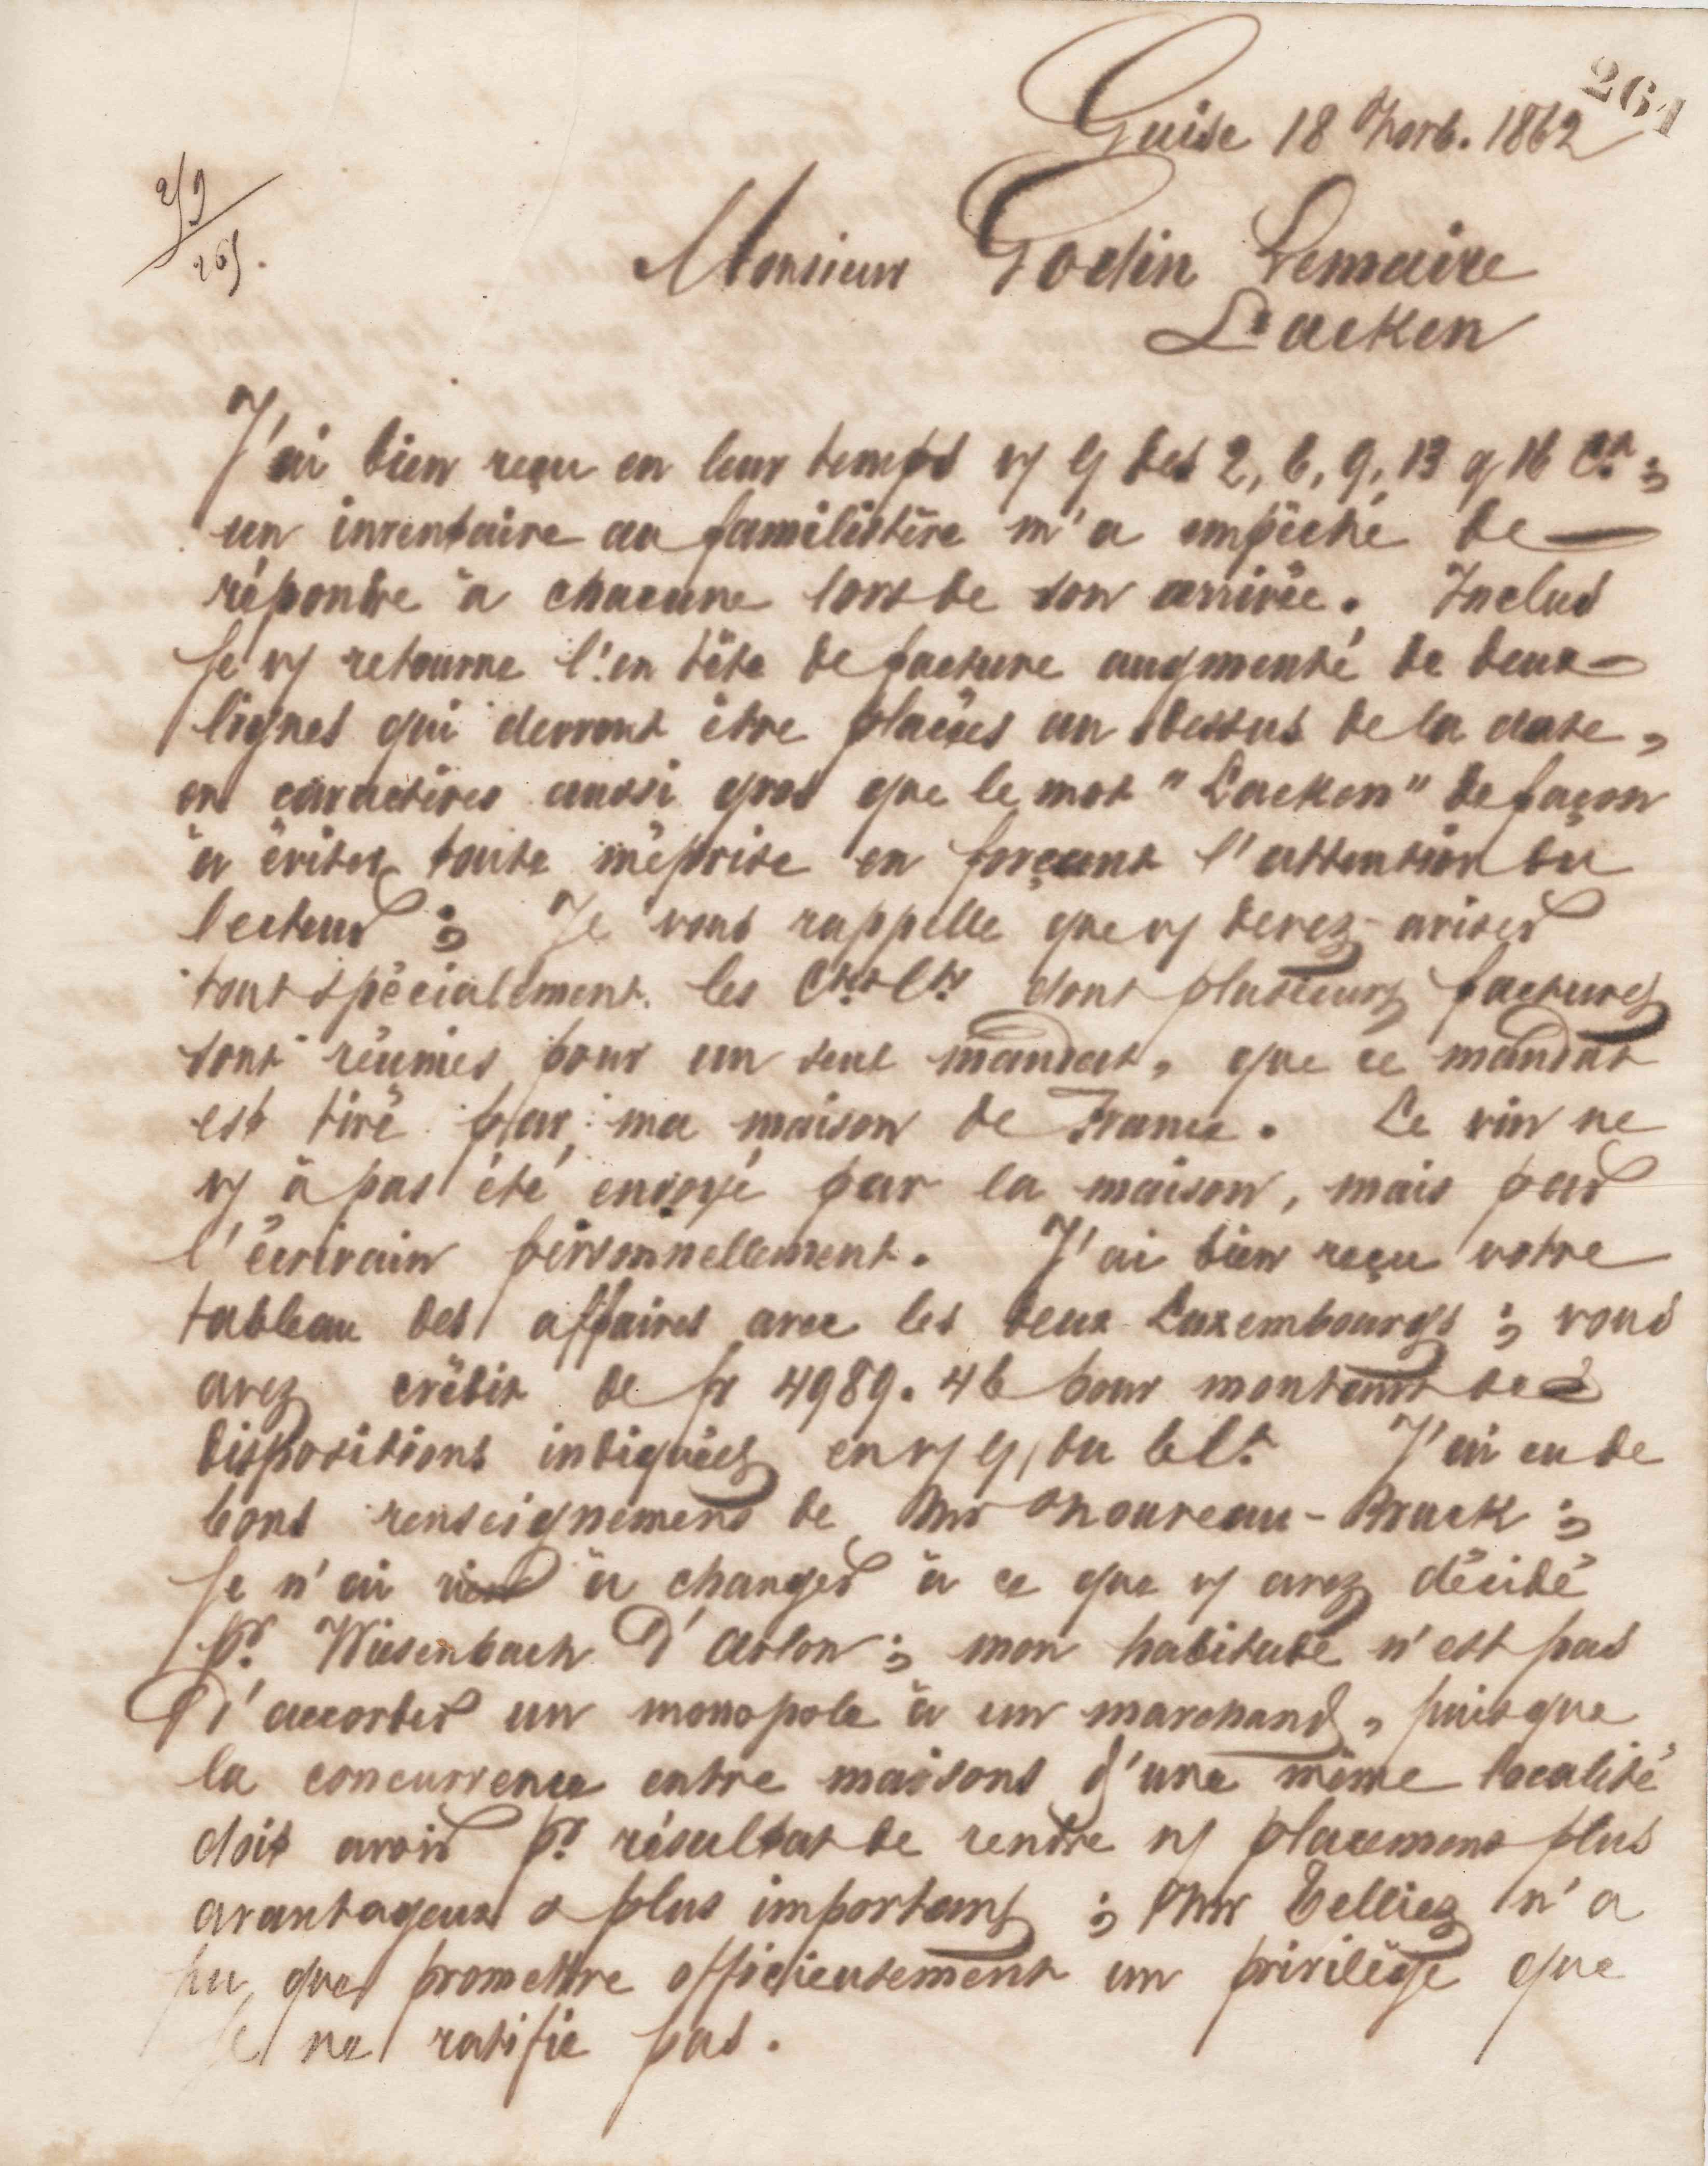 261
Guise 18 9orb. 1862
2/9
265.
Monsieur Godin Lemaire
Laeken
J'ai bien reçu en leur temps v/ l/ des 2, 6, 9, 13 & 16 Ct ;
un inventaire au familistère m'a empêché de
répondre à chacune lors de son arrivée. Inclus
je v/ retourne l'en tête de facture augmenté de deux
lignes qui devront être placées au dessus de la date,
en caractères aussi gros que le mot "Laeken" de façon
à éviter toute méprise en forçant l'attention du
lecteur ; Je vous rappelle que v/ devez aviser
tout spécialement les dont plusieurs factures
sont réunies pour un seul mandat, que ce mandat
est tiré par ma maison de France. Le vin ne
v/ à pas été envoyé par la maison, mais par
l'écrivain personnellement. J'ai bien reçu votre
tableau des affaires avec les deux Luxembourgs ; vous
avez crédit de fr 4989.46 pour montant des
dispositions indiquées en v/ l/ du 6 Ct J'ai eu de
bons renseignements de Mr Noureau-Bruck ;
je n'ai rien à changer à ce que v/ avez décidé
pr. Wiesenbach D'Arlon ; mon habitude n'est pas
D'accorder un monopole à un marchand, puisque
la concurrence entre maisons d'une même localité
doit avoir pr. résultat de rendre n/ placement plus
avantageux & plus important ; Mr Telliez n'a
pu que promettre officieusement un privilège que
je ne ratifie pas.